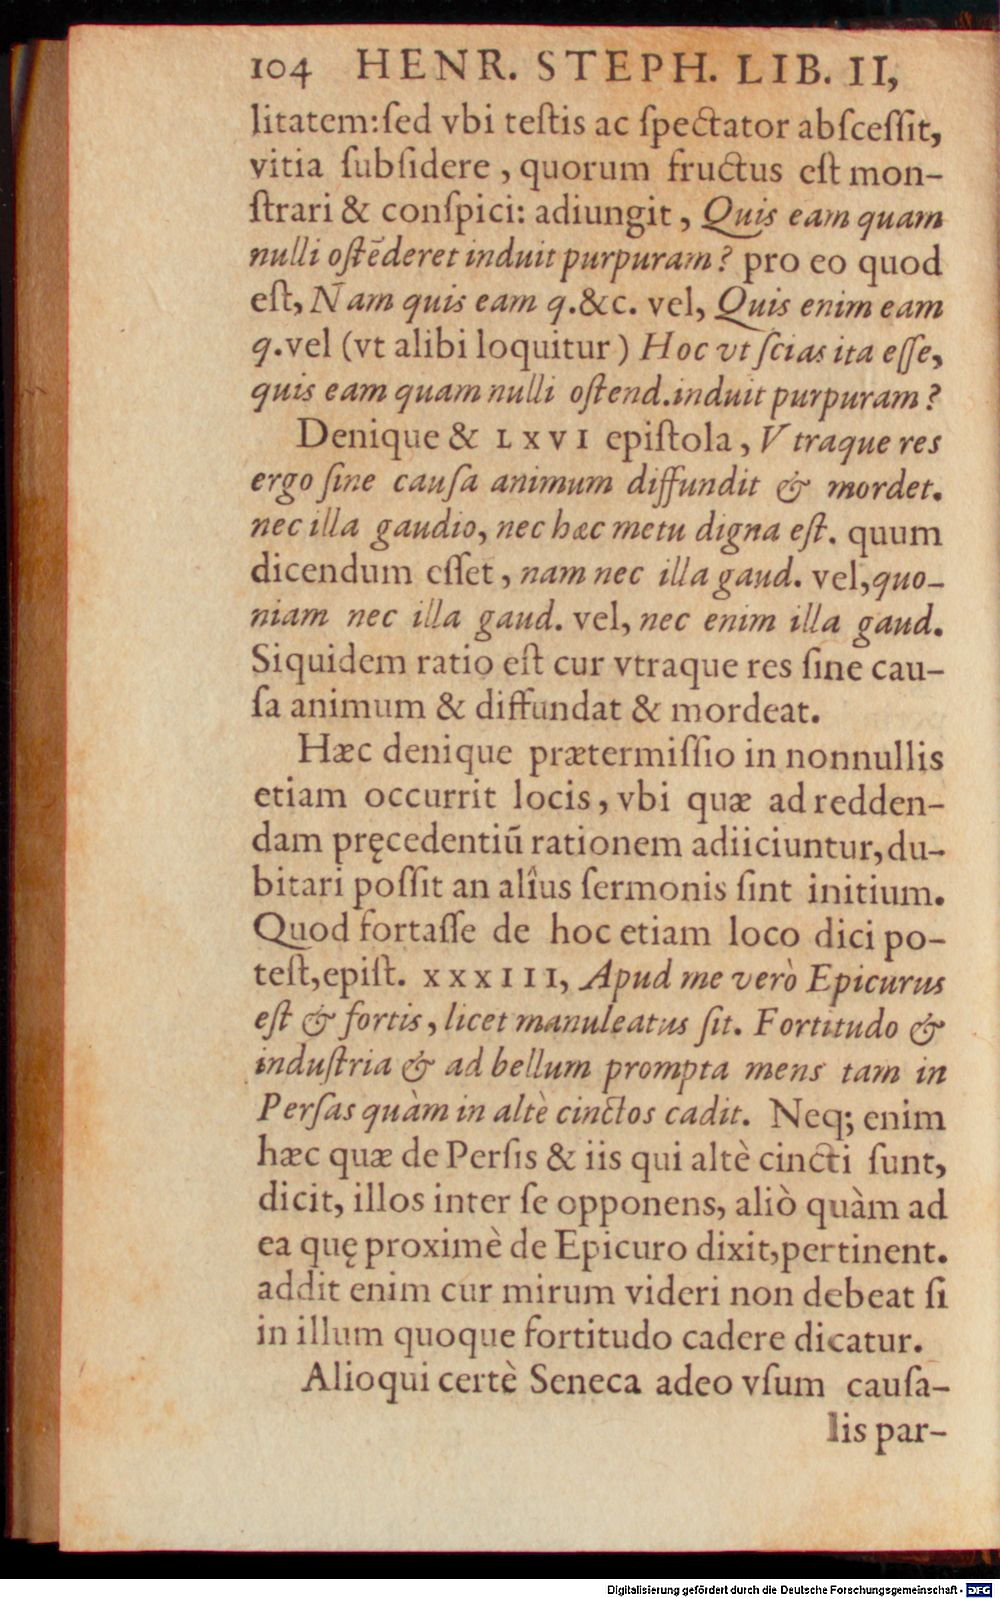 104 HENR. STEPH. LIB. II,
litatem:ſed vbi teſtis ac ſpectator abſceſſit,
vitia ſubſidere , quorum fructus eſt mon-
ſtrari & conſpici: adiungit , Quis eam quam
nulli oſtēderet induit purpuram? pro eo quod
eſt, Nam quis eam q.&c. vel, Quis enim eam
q.vel (vt alibi loquitur) Hoc vt ſcias ita eſſe,
quis eam quam nulli oſtend.induit purpuram?
Denique & LXVI epiſtola, Vtraque res
ergo ſine cauſa animum diffundit & mordet.
nec illa gaudio, nec hæc metu digna eſt. quum
dicendum eſſet , nam nec illa gaud. vel,quo-
niam nec illa gaud. vel, nec enim illa gaud.
Siquidem ratio eſt cur vtraque res ſine cau-
ſa animum & diffundat & mordeat.
Hæc denique prætermiſſio in nonnullis
etiam occurrit locis, vbi quæ ad redden-
dam pręcedentiū rationem adiiciuntur,du-
bitari poſſit an alîus ſermonis ſint initium.
Quod fortaſſe de hoc etiam loco dici po-
teſt,epiſt. XXXIII, Apud me verò Epicurus
eſt & fortis, licet manuleatus ſit. Fortitudo &
induſtria & ad bellum prompta mens tam in
Perſas quàm in altè cinctos cadit. Neq; enim
hæc quæ de Perſis & iis qui altè cincti ſunt,
dicit, illos inter ſe opponens, aliò quàm ad
ea quę proximè de Epicuro dixit,pertinent.
addit enim cur mirum videri non debeat ſi
in illum quoque fortitudo cadere dicatur.
Alioqui certè Seneca adeo vſum cauſa-
lis par-
Digitalisierung gefördert durch die Deutsche Forschungsgemeinschaft - DFG